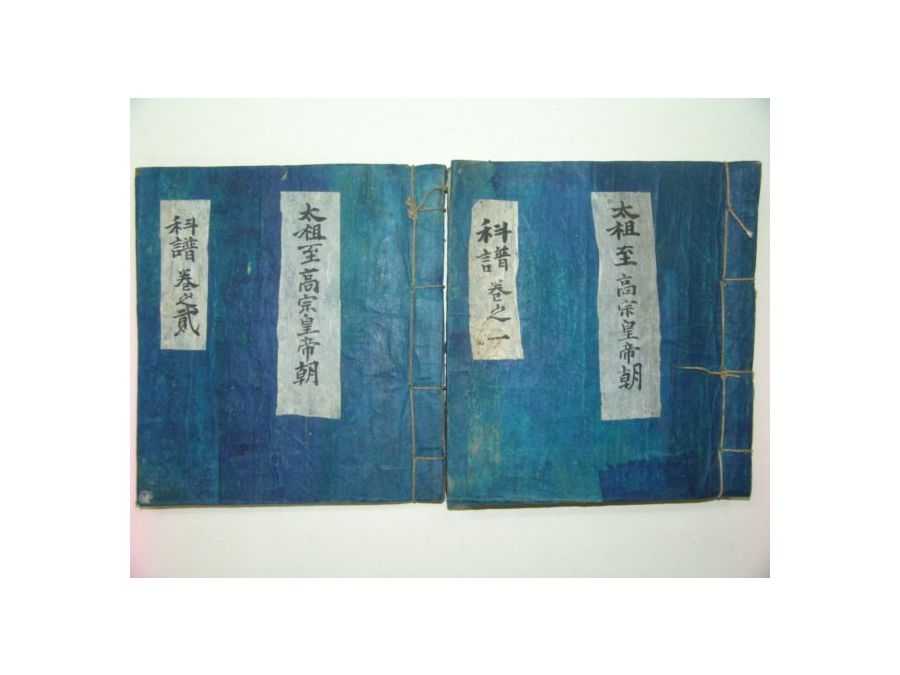 科譜 卷之一
太祖至高宗皇帝朝
科譜 卷之貳
太祖至高宗皇帝朝